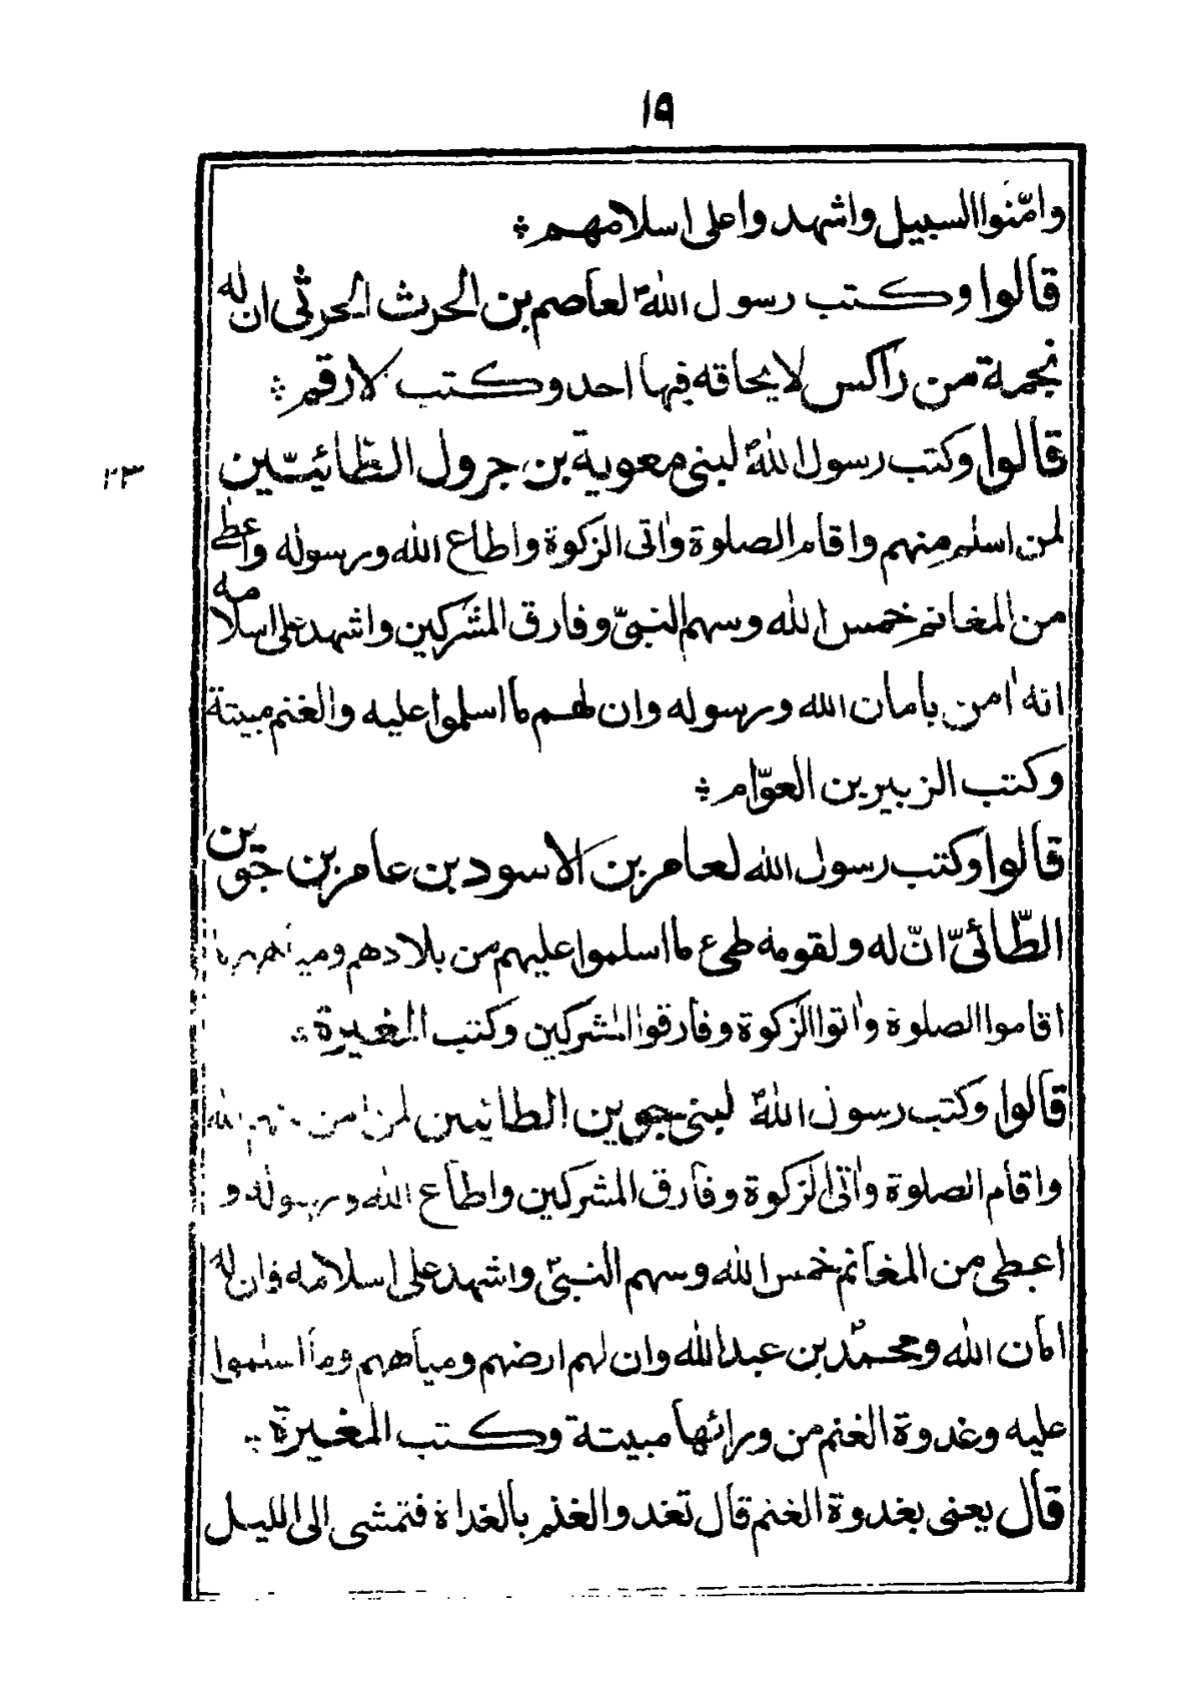 ١٩
وامّنوا السبيل واشهدوا على اسلامهم
قالوا وكتب رسول الله لعاصم بن الحرث الحرثى ان له
نجمة من راكس لا يحاقه فيها احد وكتب الارقم
قالوا وكتب رسول الله لبنى معوية بن جرول الطّائيّين
٢٣
لمن اسلم منهم واقام الصلوة واٰتى الزكوة واطاع الله ورسوله واعطى
من المغانم خمس الله وسهم النبىّ وفارق المشركين واشهد على اسلامه
انه اٰمن بامان الله ورسوله وان لهم ما اسلموا عليه والغنم مبيتة
وكتب الزبير بن العوّام
قالوا وكتب رسول الله لعامر بن الاسود بن عامر بن جوين
الطّائىّ انّ له ولقومه طىء ما اسلموا عليهم من بلادهم ومياههم ما
اقاموا الصلوة واٰتوا الزكوة وفارقوا المشركين وكتب المغيرة
قالوا وكتب رسول الله لبنى جوين الطائيين لمن اٰمن منهم بالله
واقام الصلوة واٰتى الزكوة وفارق المشركين واطاع الله ورسوله و
اعطى من المغانم خمس الله وسهم النبىّ واشهد على اسلامه فان له
امان الله ومحمد بن عبد الله وان لهم ارضهم ومياههم وما اسلموا
عليه وغدوة الغنم من ورائها مبيتة وكتب المغيرة
قال يعنى بغدوة الغنم قال تغدو الغنم بالغداة فتمشى الى الليل